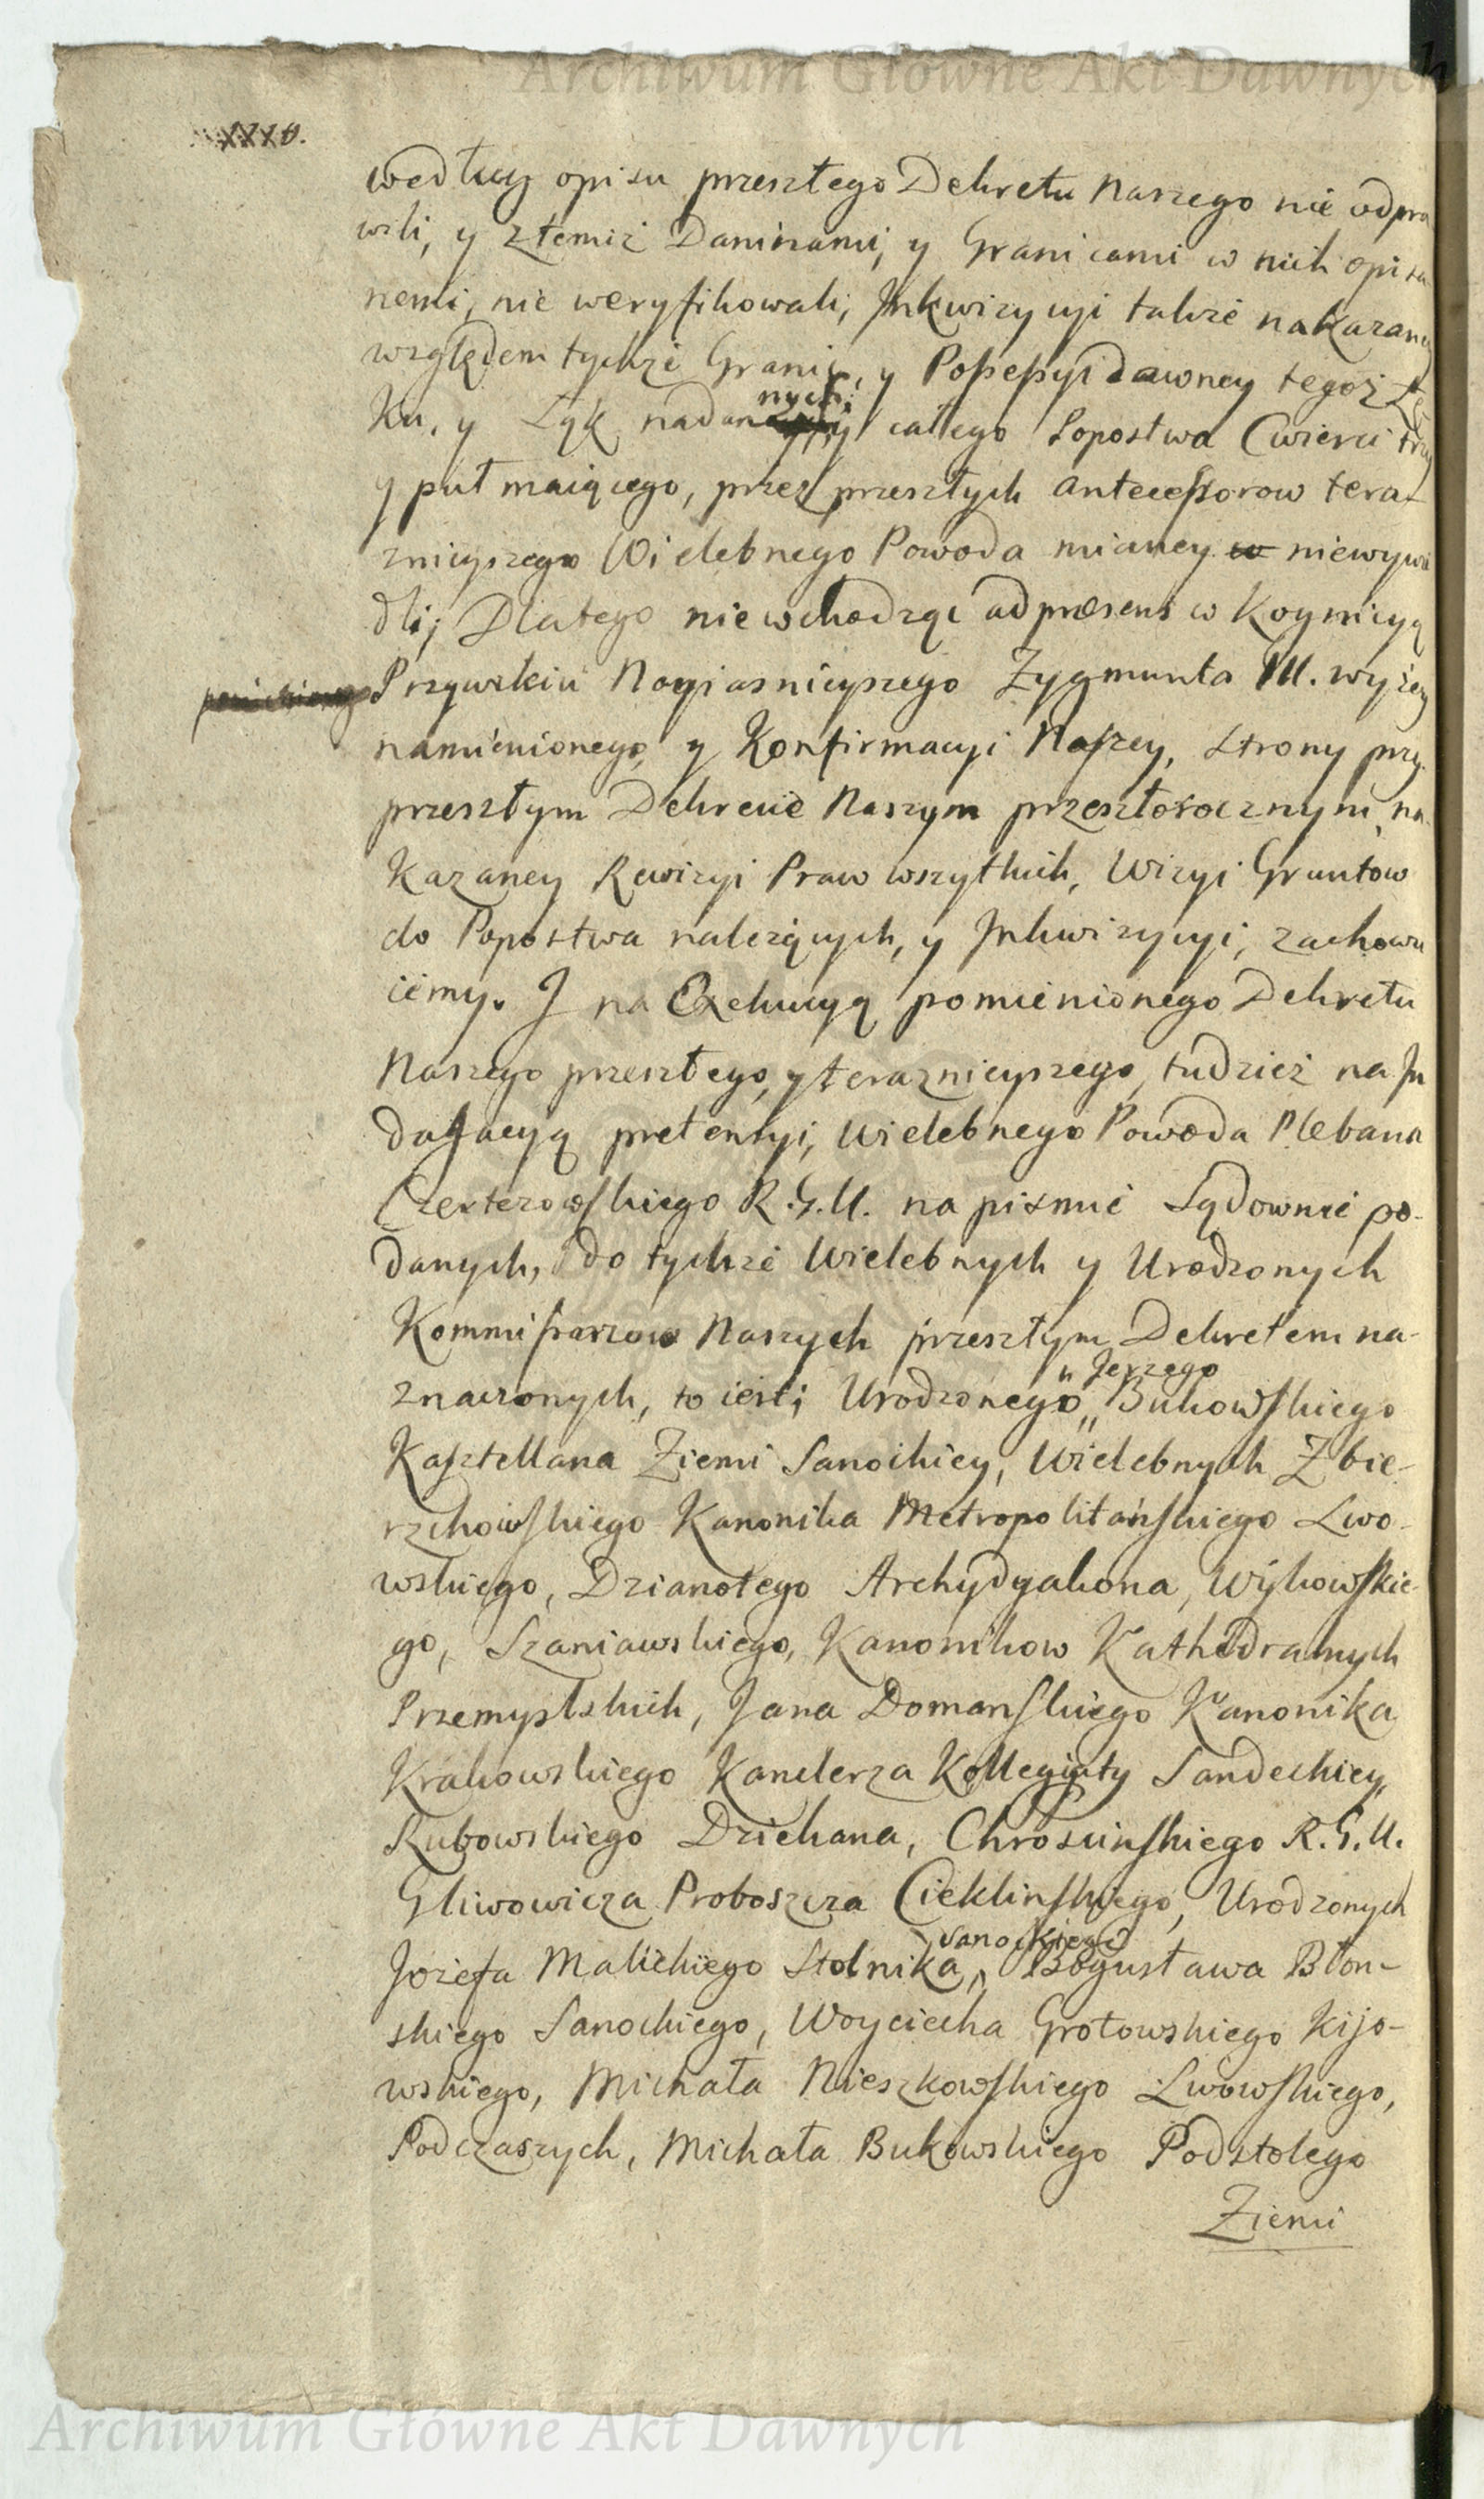 Archiwum Główne Akt Dawnych
według opisu przeszłego Dekretu Naszego nie odpra
wili, y z temiż Daninami, y Granicami w nich opisa
nemi, nie weryfikowali, Jnkwizycyi także nakazaney
względem tychże Granic, y Possessyi dawney tegoż
ku, y Łąk nadanych, y całego Popostwa Cwierci trzy
y puł maiącego, przez przeszłych Antecessorow tera-
znieyszego Wielebnego Powoda mianey w niewywie
dli; Dlatego niewchodząc ad præsens w Kognicyą
Przywileiu Nayiasnieyszego Zygmunta III. wyżey
namienionego, y Konfirmacyi Naszey, Strony przy
przeszłym Dekrecie Naszym przeszłorocznym, na-
kazaney Rewizyi Praw wszytkich, Wizyi Gruntow
do Popostwa należących, y Jnkwizycyi, zachowu
iemy. J na Exekucyą pomienionego Dekretu
Naszego przeszłego, y teraznieyszego, tudzież na Jn
dagacyą pretensyi, Wielebnego Powoda Plebana
Czerterowskiego R. G. U. na pismie Sądownie po-
danych, do tychże Wielebnych y Urodzonych
Kommissarzow Naszych przeszłym Dekretem na-
znaczonych, to iest; Urodzonego Jerzego Bukowskiego
Kasztellana Ziemi Sanockiey, Wielebnych Zbie-
rzchowskiego Kanonika Metropolitańskiego Lwo-
wskiego, Dzianotego Archydyakona, Wykowskie-
go, Szaniawskiego, Kanonikow Kathedralnych
Przemyslskich, Jana Domanskiego Kanonika
Krakowskiego Kanclerza Kollegiaty Sandeckiey,
Rubowskiego Dziekana, Chroscinskiego R. G. U.
Gliwowicza Proboszcza Cieklinskiego, Urodzonych
Jozefa Malickiego Stolnika Sanockiego, Bogusława Błon-
skiego Sanockiego, Woyciecha Grotowskiego Kijo-
wskiego, Michała Nieszkowskiego Lwowskiego,
Podczaszych, Michała Bukowskiego Podstolego
Ziemi
Archiwum Główne Akt Dawnych